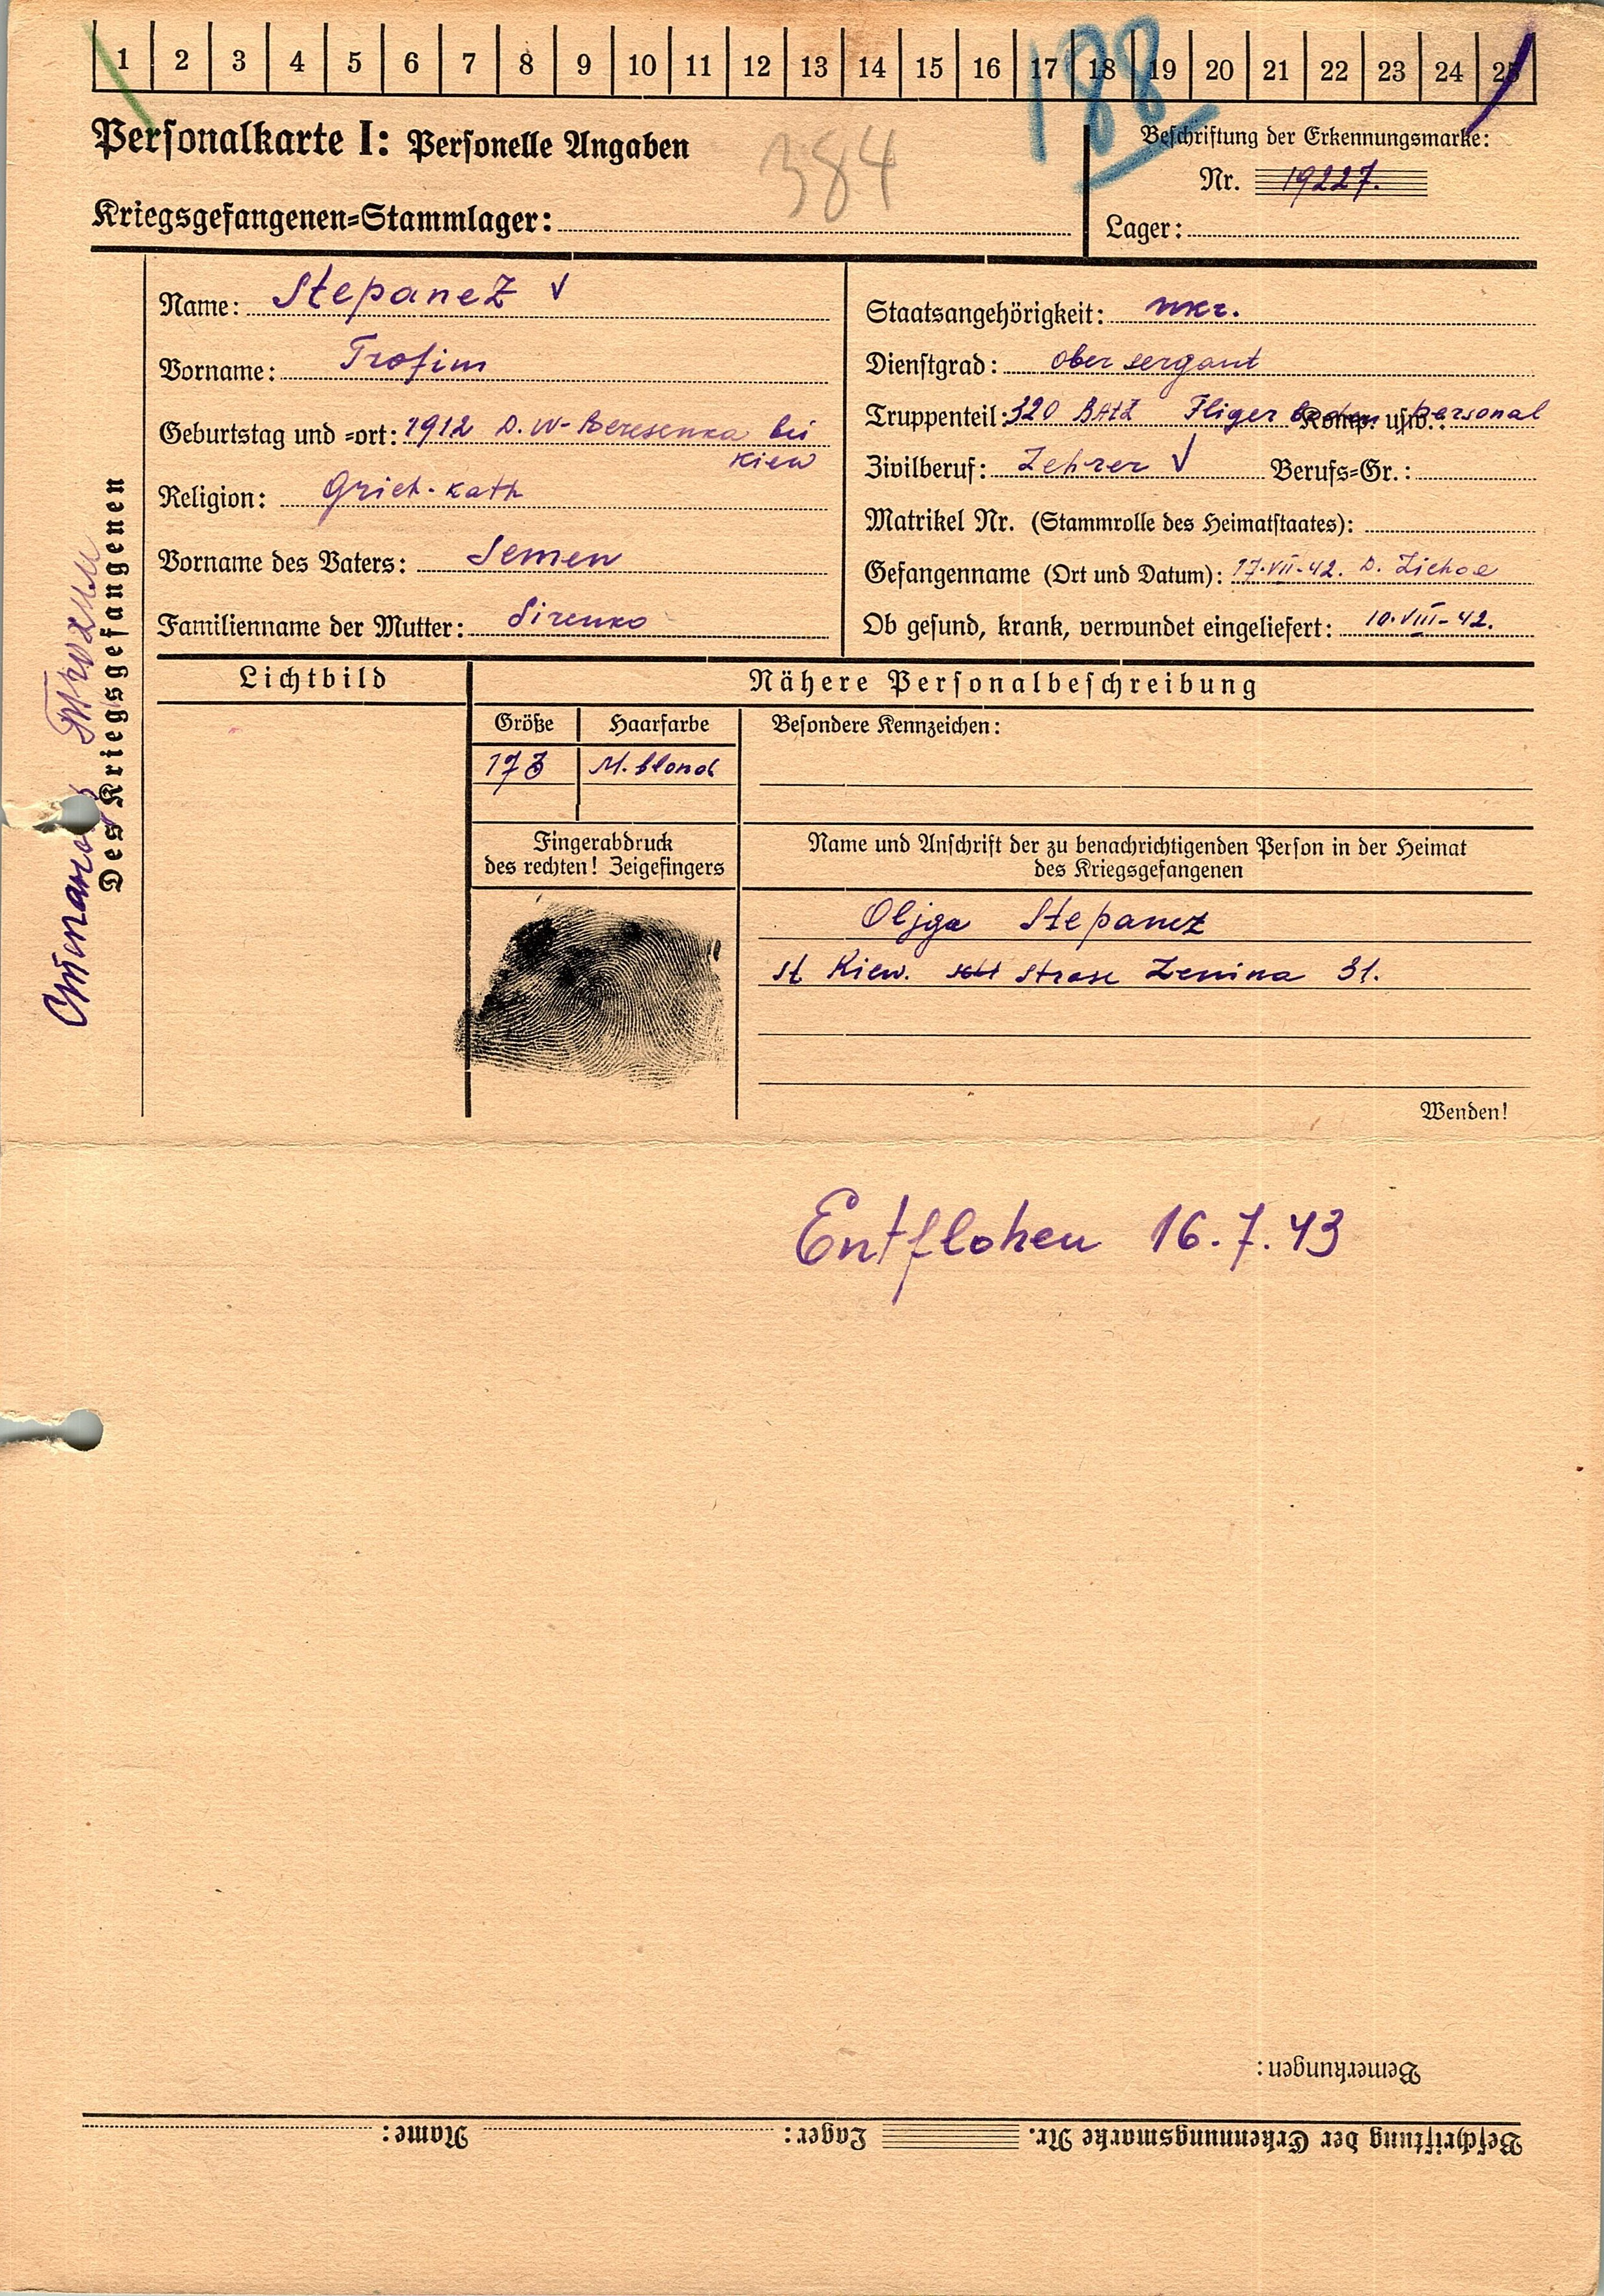 1 2 3 4 5 6 7 8 9 10 11 12 13 14 15 16 17 18 19 20 21 22 23 24 25
188
Personalkarte I: Personelle Angaben
384
Beschriftung der Erkennungsmarke:
Nr. 19227.
Kriegsgefangenen=Stammlager:
Lager:
Des Kriegsgefangenen
Name: Stepanez
Vorname: Trofim
Geburtstag und =ort: 1912 D. W-Beresenka bei
Kiew
Religion: Grich-kath
Vorname des Vaters: Semen
Familienname der Mutter: Sirenko
Staatsangehörigkeit: ukr.
Dienstgrad: ober sergant
Truppenteil: 320 Fliger boden personal Komp. usw.:
Zivilberuf: Lehrer Berufs=Gr.:
Matrikel Nr. (Stammrolle des Heimatstaates):
Gefangenname (Ort und Datum): 17.VII-42. D.
Ob gesund, krank, verwundet eingeliefert: 10.VIII-42.
Lichtbild
Nähere Personalbeschreibung
Größe Haarfarbe Besondere Kennzeichen:
173 M. blond
Fingerabdruck
des rechten! Zeigefingers
Name und Anschrift der zu benachrichtigenden Person in der Heimat
des Kriegsgefangenen
Oljga Stepanez
st Kiew. strase Lenina 31.
Wenden!
Entflohen 16.7.43
Bemerkungen:
Beschriftung der Erkennungsmarke Nr. Lager: Name: